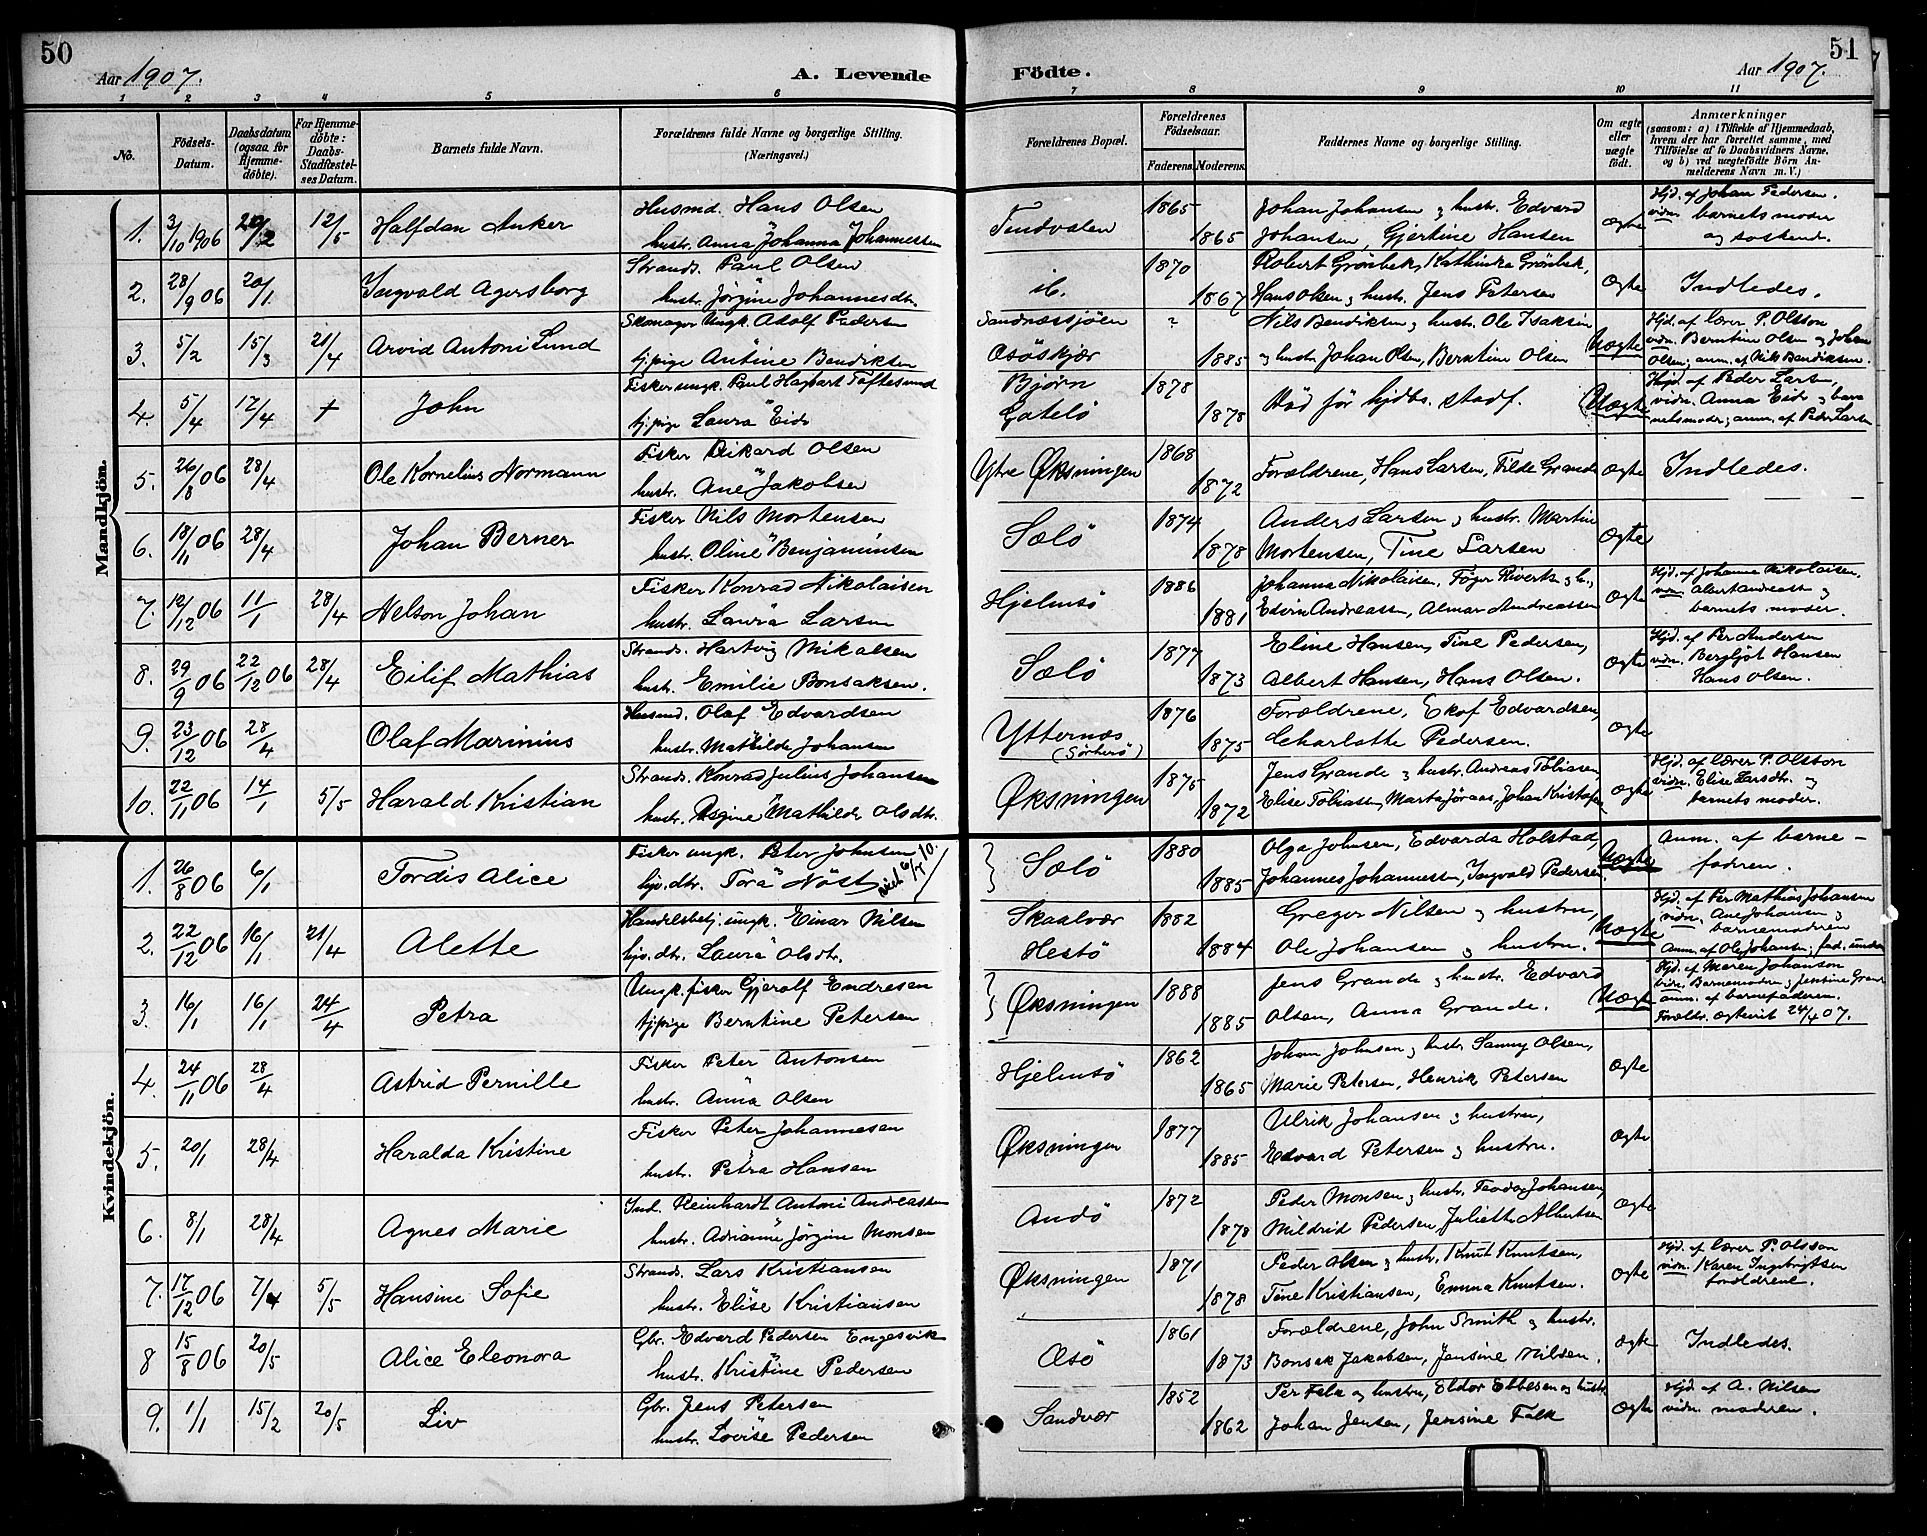 50
Aar 1907.
A. Levende
Födte.
Aar 1907.
51
1 2 3 4 5 6 7 8 9 10 11
No.
Födsels-
Datum.
Daabsdatum
(ogsaa for
Hjemme-
döbte).
For Hjemme-
döbte:
Daabs-
Stadfæstel-
ses Datum.
Barnets fulde Navn.
Forældrenes fulde Navne og borgerlige Stilling.
(Næringsvei.)
Forældrenes Bopæl.
Forældrenes
Födselsaar.
Faderens. Moderens.
Faddernes Navne og borgerlige Stilling.
Om ægte
eller
uægte
födt.
Anmærkninger
(saasom: a) i Tilfælde af Hjemmedaab,
hvem der har forrettet samme, med
Tilföielse af to Daabsvidners Navne,
og b) ved uægtefödte Börn An-
melderens Navn m. V.)
Mandkjön.
1. 3/10 1906 12/5 Halfdan Anker
Husmd. Hans Olsen
hustr. Anna Johanna Johannessen
Tindvalen 1865 1865
Johan Johansen og hustr. Edvard
Johansen, Gjertine Hansen
Ægte
Hjd. af Johan Pedersen.
vidn. barnets moder
og söskende.
2. 28/9 06 20/1 Ingvald Agersborg
Strands. Paul Olsen
hustr. Jörgine Johannesdtr.
ib. 1870 1867
Robert Grönbek, Kathinka Grönbek,
Hans Olsen og hustr. Jens Petersen
Ægte
Indledes.
3. 5/2 15/3 21/4 Arvid Antoni Lund
Skomager Ungk. Adolf Pedersen
tj.pige Antine Bendiksen
Sandnæssjöen
Osöskjær ? 1885
Nils Bendiksen og hustr. Ole Isaksen
og hustr. Johan Olsen, Berntine Olsen
Uægte
Hjd. af lærer P. Olsson
vidn. Berntine Olsen og Johan
Olsen; anm. af Nils Bendiksen.
4. 5/4 12/4 + John
Fisker ungk. Paul Hagbart Toftesund
tj.pige Laura Eide
Bjørn
Gatelö 1878 1878
Död för hjdbs. stadf.
Uægte
Hjd. af Peder Larsen,
vidn. Anna Eide og bar-
netsmoder; anm. af Peder Larsen
5. 26/8 06 28/4 Ole Kornelius Normann
Fisker Rikard Olsen
hustr. Ane Jakobsen
Ytre Øksningen 1868 1872
Forældrene, Hans Larsen, Tilde Grande
Ægte
Indledes.
6. 18/11 06 28/4 Johan Berner
Fisker Nils Mortensen
hustr. Oline Benjaminsen
Sælö 1874 1878
Anders Larsen og hustr. Martin
Mortensen, Tine Larsen
Ægte
7. 12/12 06 11/1 28/4 Nelson Johan
Fisker Konrad Nikolaisen
hustr. Laura Larsen
Hjelmsö 1886 1881
Johanna Nikolaisen,
Edvin Andreassen, Almar Andreassen
Ægte
Hjd. af Johanna Nikolaisen.
vidn. Albert Andreassen og
barnets moder.
8. 29/9 06 22/12 06 28/4 Eilif Mathias
Strands. Hartvig Mikalsen
hustr. Emilie Bonsaksen.
Sælö 1877 1873
Eline Hansen, Tine Pedersen,
Albert Hansen, Hans Olsen.
Ægte
Hjd. af Per Andersen
vidn. Bergljot Hansen
Hans Olsen.
9. 23/12 06 28/4 Olaf Marinius
Husmd. Olaf Edvardsen
hustr. Mathilde Johansen
Ytternæs
(Sörherö) 1876 1875
Forældrene, Ekof Edvardsen,
Charlotte Pedersen.
Ægte
10. 22/11 06 14/1 5/5 Harald Kristian
Strands. Konrad Julius Johansen
hustr. Mathilde Olsdtr.
Øksningen 1875 1872
Jens Grande og hustr. Andreas Tobiasen,
Elise Tobiassen, Marta Jöraas, Johan Kristofersen
Ægte
Hjd. af lærer P. Olsson
vidn. Elise Larsdtr. og
barnets moder.
Kvindekjön.
1. 26/8 06 6/1 Tordis Alice
Fisker ungk. Peter Johnsen
hjs.dtr. Tora Nöst
Sælö 1880 1885
Olga Johnsen, Edvarda Holstad,
Johannes Johannessen, Ingvald Pedersen.
Uægte
Anm. af barne-
faderen.
2. 22/12 06 16/1 21/4 Alette
Handelsbetj. ungk. Einar Nilsen
hjs.dtr. Laura Olsdtr.
Skaalvær
Hestö 1882 1884
Gregor Nilsen og hustru,
Ole Johansen og hustru.
Uægte
Hjd. af Per Mathias Johansen
vidn. Ane Johansen og
barnemoderen
Anm. af Ole Johansen; fad. under
3. 16/1 16/1 24/4 Petra
Ungk. fisker Gjeralf Endresen
tj.pige Berntine Petersen
Øksningen 1888 1885
Jens Grande og hustr. Edvard
Olsen, Anna Grande.
Uægte
Hjd. af Maren Johanson
vidn. Barnemoderen og Jensine Grande
anm. af barnefaderen.
Forældr. ægteviet 24/4 07.
4. 24/11 06 28/4 Astrid Pernille
Fisker Peter Antonsen
hustr. Anna Olsen
Hjelmsö 1862 1865
Johan Johnsen og hustr. Sanny Olsen,
Marie Petersen, Henrik Petersen
Ægte
5. 20/1 28/4 Haralda Kristine
Fisker Peter Johannesen
hustr. Petra Hansen
Øksningen 1877 1885
Ulrik Johansen og hustru,
Edvard Petersen og hustru.
Ægte
6. 8/1 28/4 Agnes Marie
Ind. Reinhardt Antoni Andreassen
hustr. Adrianne Jörgine Monsen
Andö 1872 1878
Peder Monsen og hustr. Teodor Johansen,
Mildrid Pedersen, Juliette Albertsen
Ægte
7. 17/12 06 7/4 5/5 Hansine Sofie
Strands. Lars Kristiansen
hustr. Elise Kristiansen
Øksningen 1871 1878
Peder Olsen og hustr. Knut Knutsen,
Tine Kristiansen, Emma Knutsen.
Ægte
Hjd. af lærer P. Olsson
vidn. Karen Ingebrigtsen
forældrene.
8 15/8 06 20/5 Alice Eleonora
Gbr. Edvard Pedersen Engesvik
hustr. Kristine Pedersen
Osö 1861 1873
Forældrene, John Smith og hustr.
Bonsak Jakobsen, Jensine Nilsen.
Ægte
Indledes.
9. 1/1 15/2 20/5 Liv
Gbr. Jens Petersen
hustr. Lovise Pedersen
Sandvær 1852 1862
Per Falk og hustru, Eldor Ebbesen og hustr.
Johan Jensen, Jensine Falk
Ægte
Hjd. af A. Nilsen
vidn. moderen.